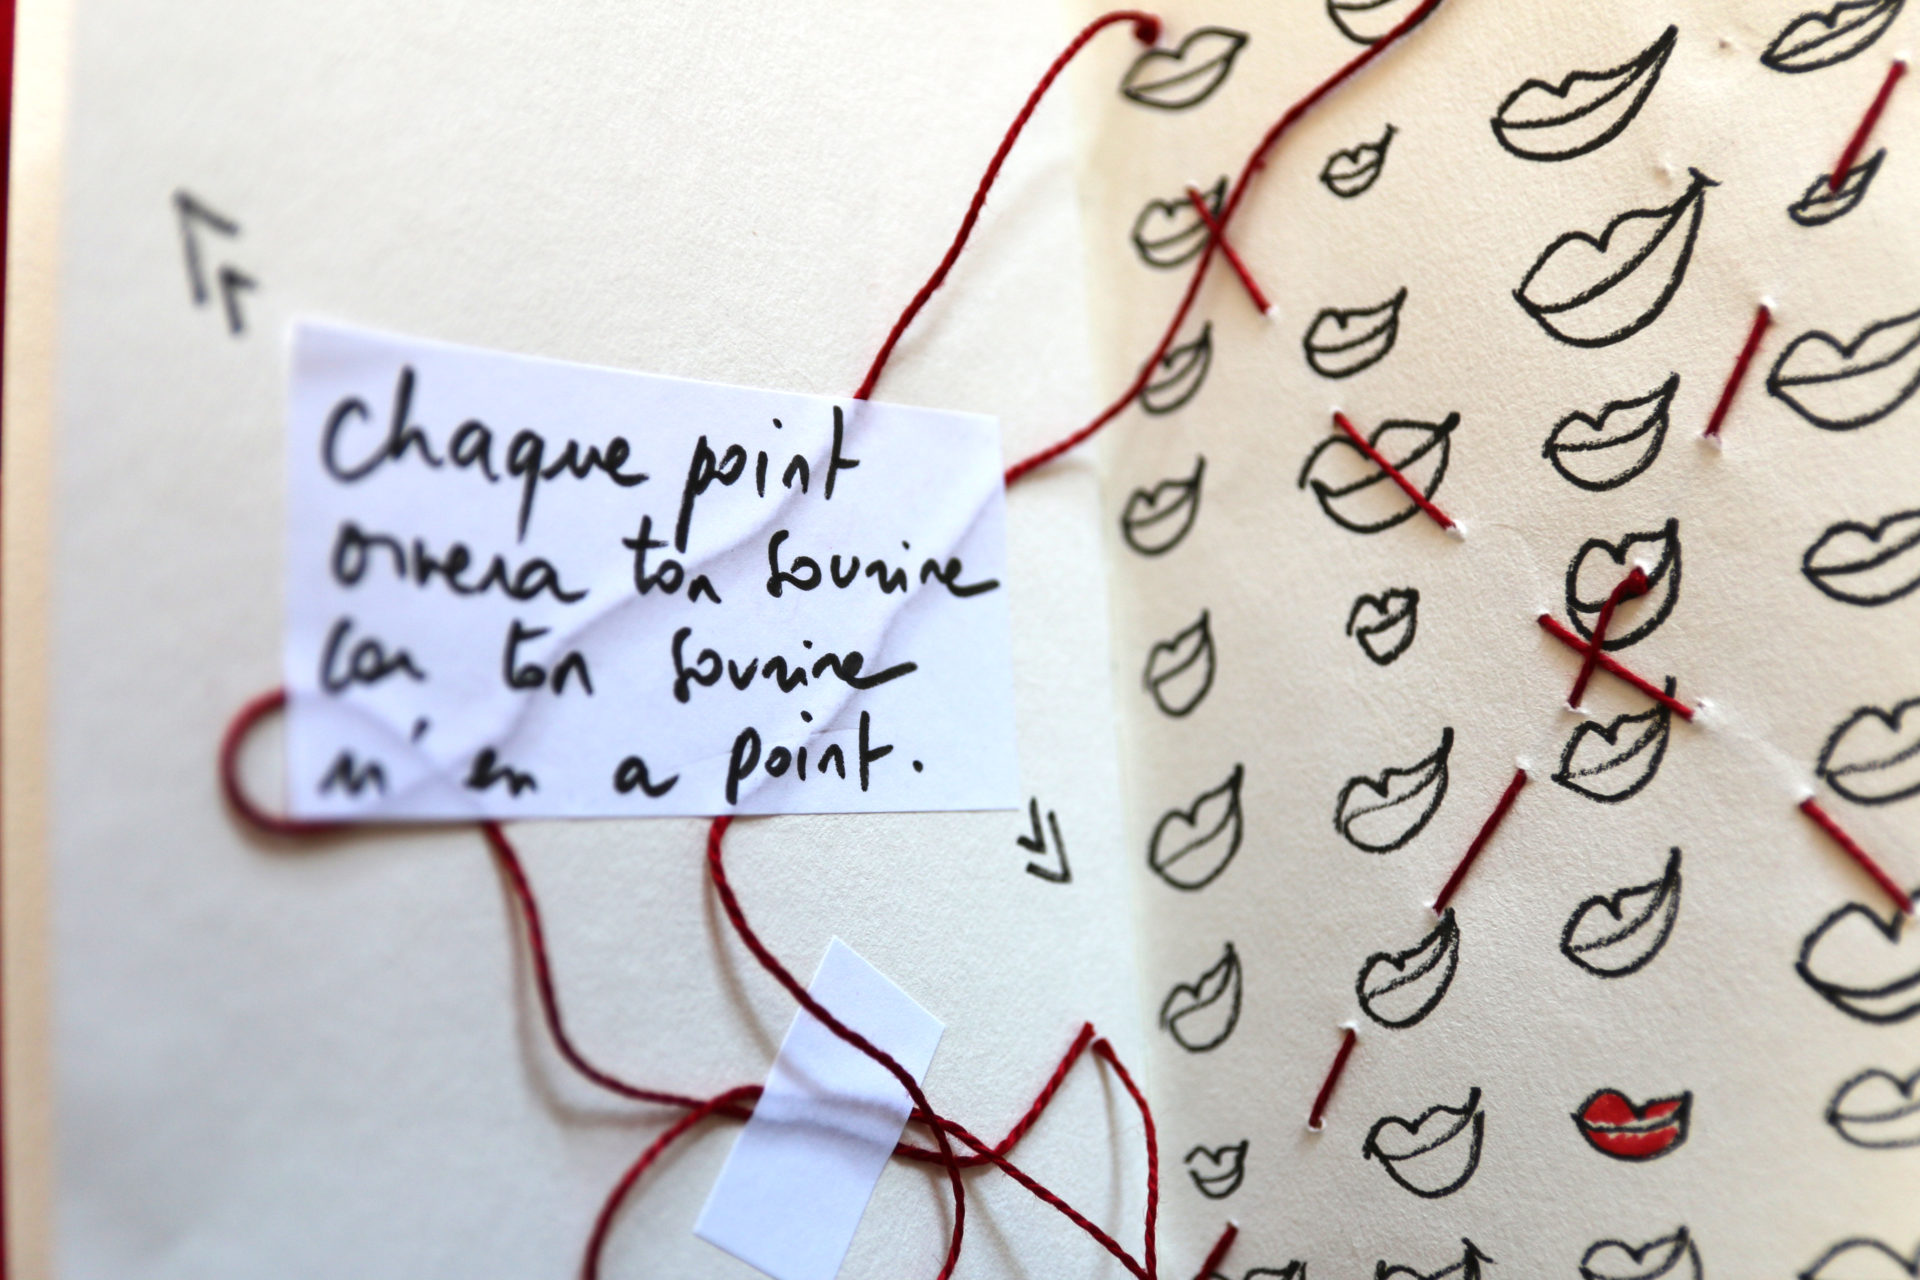 «
Chaque point
ornera ton sourire
car ton sourire
n'en a point.
»